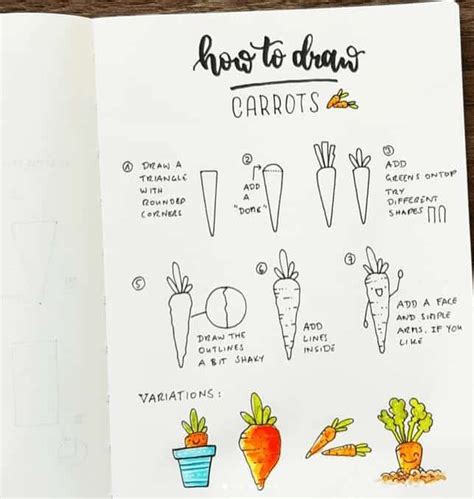 how to draw
CARROTS
① DRAW A
TRIANGLE
WITH
ROUNDED
CORNERS
②
ADD
A
"DOME"
③
ADD
GREENS ON TOP
TRY
DIFFERENT
SHAPES
⑤
DRAW THE
OUTLINES
A BIT SHAKY
⑥
ADD
LINES
INSIDE
⑦
ADD A FACE
AND SIMPLE
ARMS, IF YOU
LIKE
VARIATIONS: